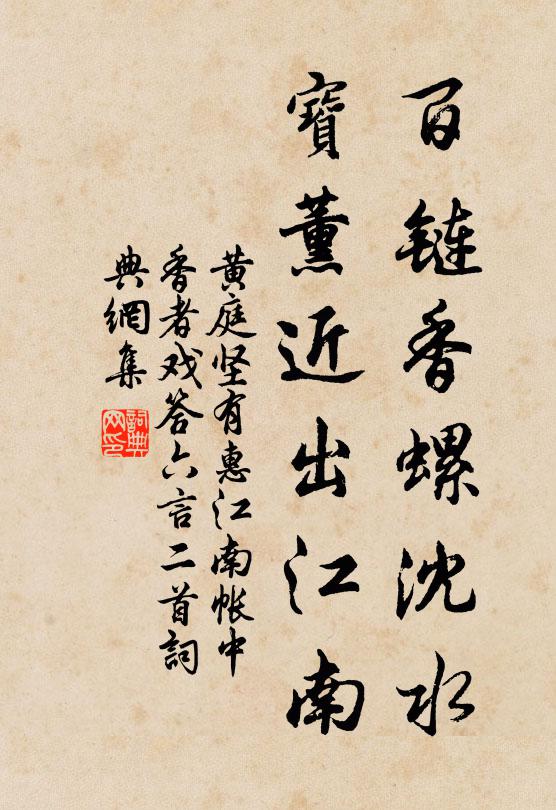 百鏈香螺沈水
寶薰近出江南
黄庭坚有惠江南帐中
香者戏答六言二首詞
典網集
詞典網印